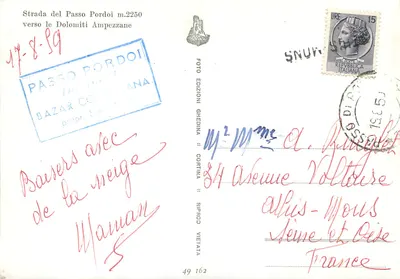 Strada del Passo Pordoi m.2250
verso le Dolomiti Ampezzane
17-8-59
PASSO PORDOI
BAZAR
Baisers avec
de la neige
Maman
FOTO EDIZIONI GHEDINA - CORTINA - RIPROD. VIETATA
49 162
15
M² Mme A.
84 Avenue Voltaire
Athis-Mons
Seine et Oise
France